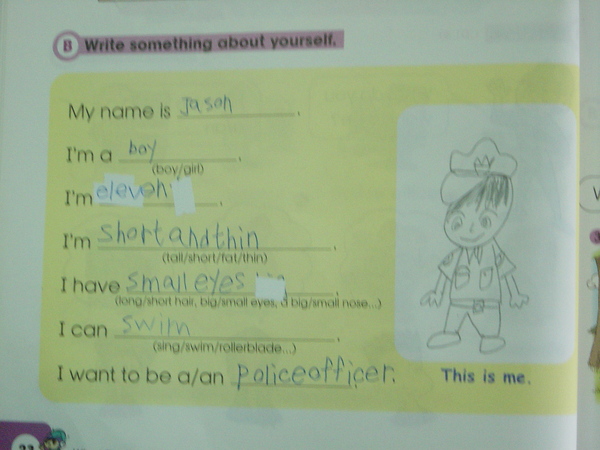 B Write something about yourself.
My name is Jason.
I'm a boy.
(boy/girl)
I'm eleven.
I'm short and thin.
(tall/short/fat/thin)
I have small eyes.
(long/short hair, big/small eyes, a big/small nose...)
I can swim.
(sing/swim/rollerblade...)
I want to be a/an police officer.
This is me.